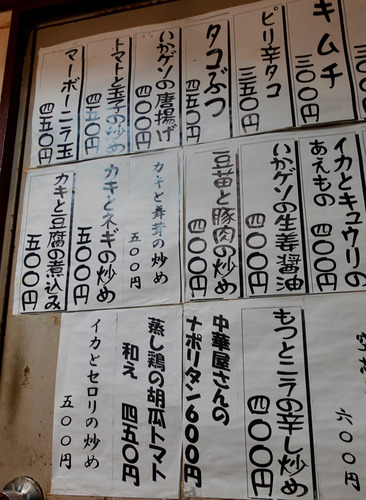 三〇〇円
キムチ
三〇〇円
ピリ辛タコ
三五〇円
タコぶつ
四五〇円
いかゲソの唐揚げ
四〇〇円
トマトと玉子の炒め
四五〇円
マーボーニラ玉
四五〇円
イカとキュウリの
あえもの 四〇〇円
いかゲソの生姜醤油
四〇〇円
豆苗と豚肉の炒め
四〇〇円
カキと舞茸の炒め
五〇〇円
カキとネギの炒め
五〇〇円
カキと豆腐の煮込み
五〇〇円
六〇〇円
もつとニラの辛し炒め
四〇〇円
中華屋さんの
ナポリタン600円
蒸し鶏の胡瓜トマト
和え 四五〇円
イカとセロリの炒め
五〇〇円